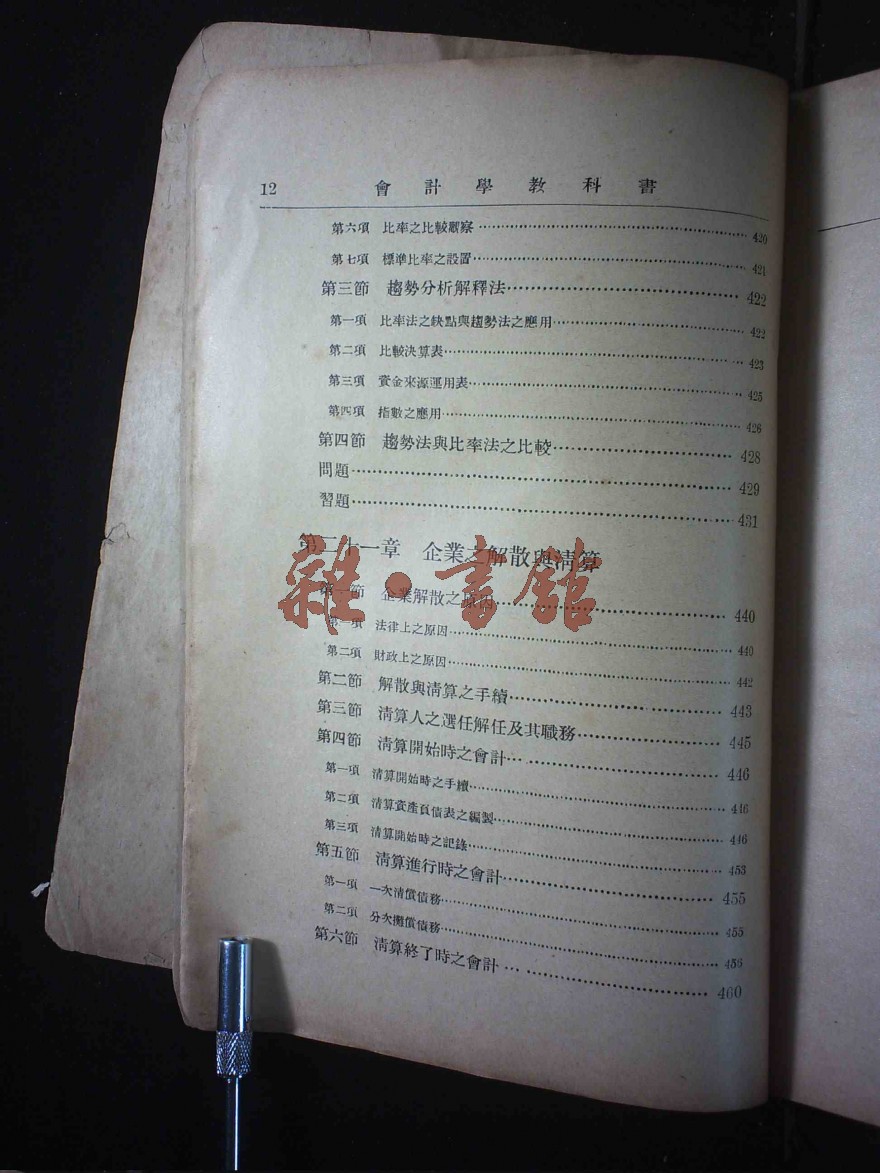 12 會計學教科書
第六項 比率之比較觀察 420
第七項 標準比率之設置 421
第三節 趨勢分析解釋法 422
第一項 比率法之缺點與趨勢法之應用 422
第二項 比較決算表 423
第三項 資金來源運用表 425
第四項 指數之應用 426
第四節 趨勢法與比率法之比較 428
問題 429
習題 431
第二十一章 企業之解散與清算
雜·書館
第一節 企業解散之原因 440
第一項 法律上之原因 440
第二項 財政上之原因 442
第二節 解散與清算之手續 443
第三節 清算人之選任解任及其職務 445
第四節 清算開始時之會計 446
第一項 清算開始時之手續 446
第二項 清算資產負債表之編製 446
第三項 清算開始時之記錄 453
第五節 清算進行時之會計 455
第一項 一次清償債務 455
第二項 分次攤償債務 456
第六節 清算終了時之會計 460